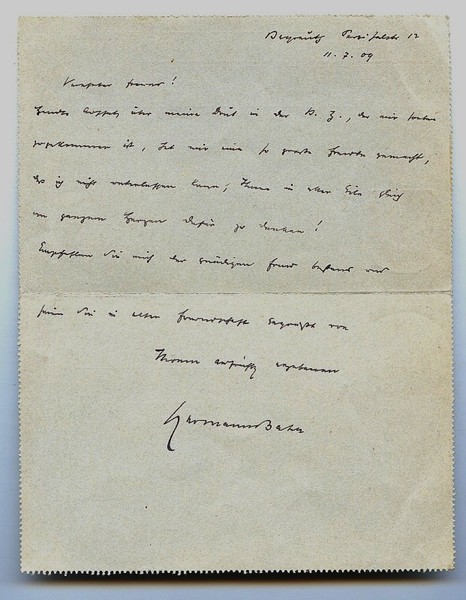 Bayreuth Parsifalstr 12
11. 7. 09
Verehrter Freund!
über meine Drut in der N. Z., der mir soeben
zugekommen ist, hat mir eine so große Freude gemacht,
daß ich nicht unterlassen kann, Ihnen in aller Eile gleich
von ganzem Herzen dafür zu danken!
Empfehlen Sie mich der gnädigen Frau bestens und
seien Sie in alter Freundschaft gegrüßt von
Ihrem aufrichtig ergebenen
HermannBahr